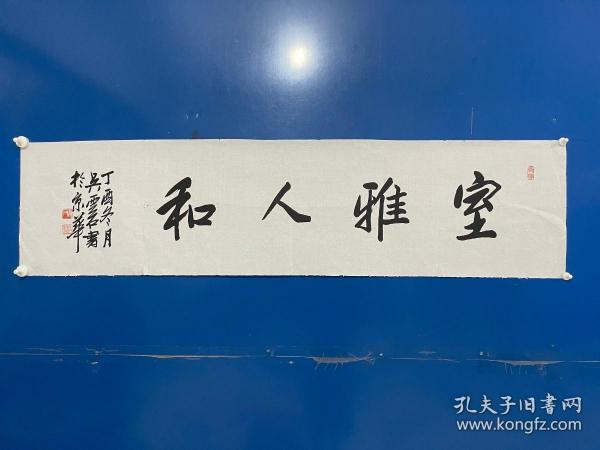 室雅人和
丁酉冬月
吴云书
於京華
孔夫子旧書网
www.kongfz.com